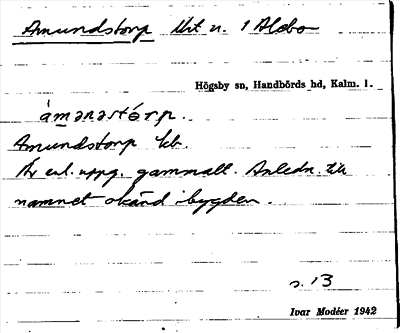 Amundstorp Utt n. 1 Alebo
Högsby sn, Handbörds hd, Kalm. l.
ámənəstórp.
Amundstorp kb.
Är enl. uppg. gammalt. Anledn. till
namnet okänd i bygden.
s. 13
Ivar Modéer 1942